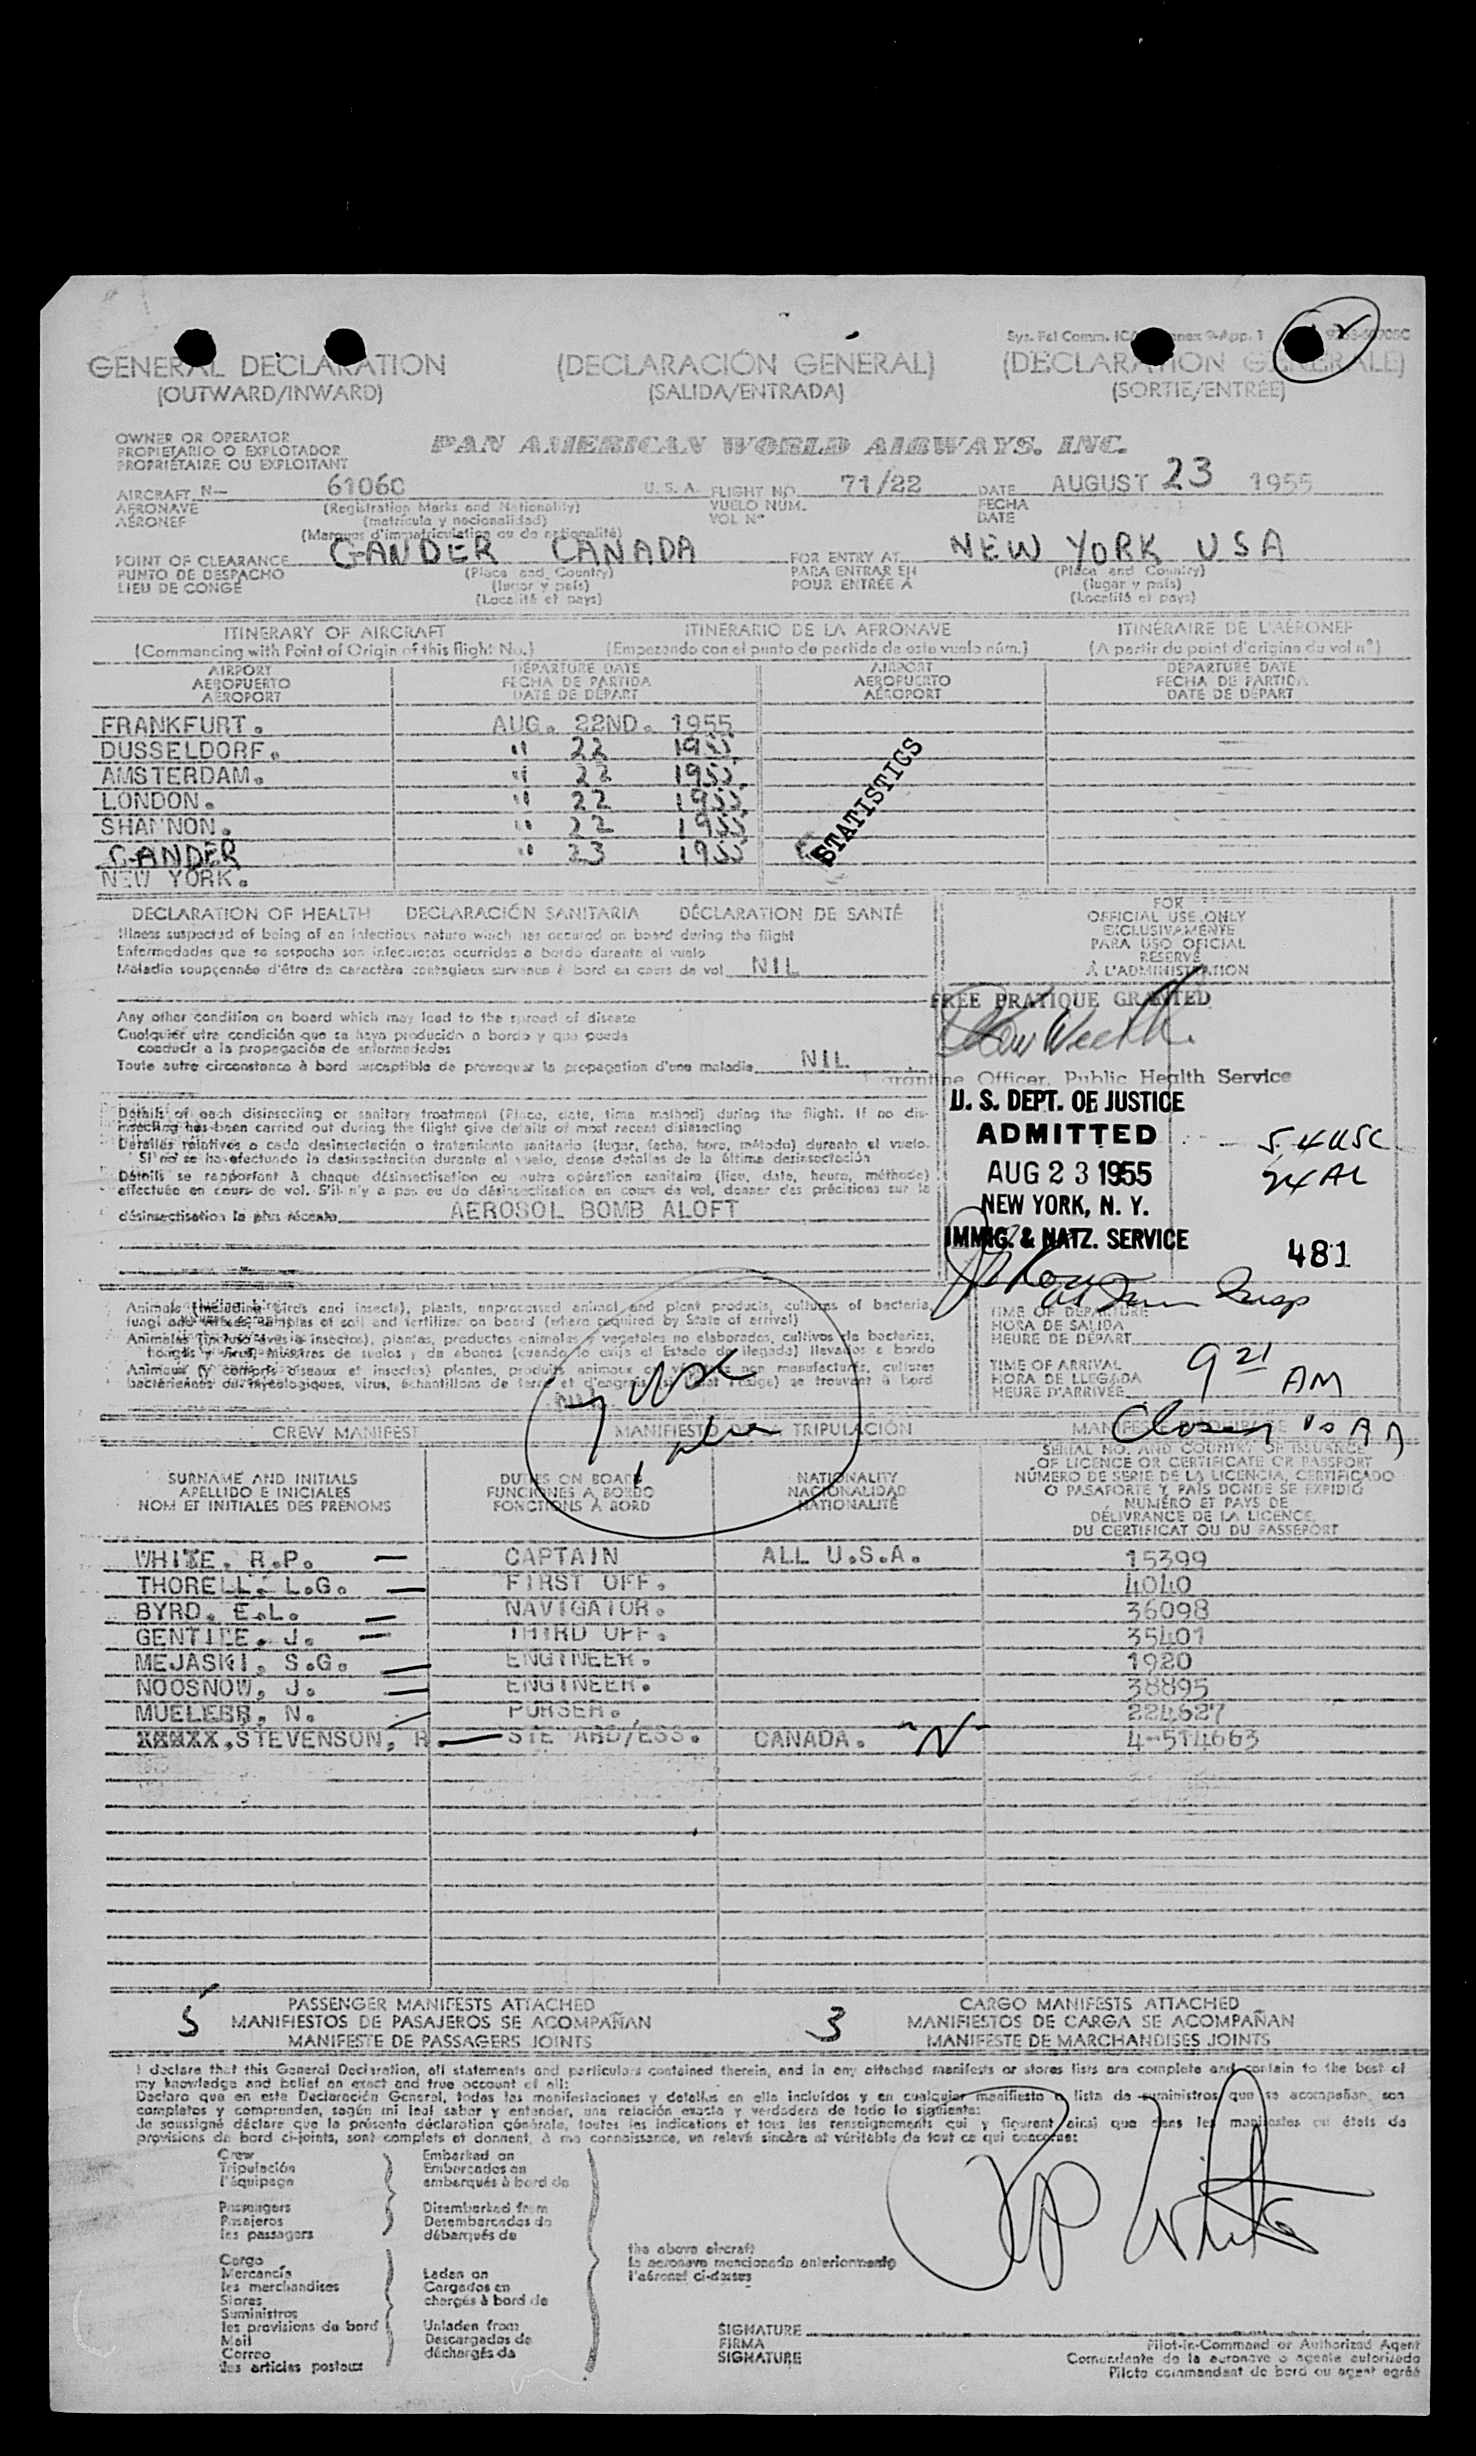 Sys. Fel Comm. ICA Annex 9-App. 1
GENERAL DECLARATION (DECLARACIÓN GENERAL) (DECLARATION GENERALE)
(OUTWARD/INWARD) (SALIDA/ENTRADA) (SORTIE/ENTRÉE)
OWNER OR OPERATOR
PROPIETARIO O EXPLOTADOR
PROPRIÉTAIRE OU EXPLOITANT
PAN AMERICAN WORLD AIRWAYS, INC.
AIRCRAFT N— 6106C U.S.A. FLIGHT NO. 71/22 DATE AUGUST 23 1955
AERONAVE (Registration Marks and Nationality) VUELO NUM. FECHA
AÉRONEF (matrícula y nacionalidad) VOL Nº DATE
(Marques d'immatriculation ou de nationalité)
POINT OF CLEARANCE GANDER CANADA FOR ENTRY AT NEW YORK USA
PUNTO DE DESPACHO (Place and Country) PARA ENTRAR EN (Place and Country)
LIEU DE CONGÉ (lugar y país) POUR ENTRÉE À (lugar y país)
(Localité et pays) (Localité et pays)
ITINERARY OF AIRCRAFT ITINERARIO DE LA AERONAVE ITINÉRAIRE DE L'AÉRONEF
(Commencing with Point of Origin of this flight No.) (Empezando con el punto de partida de este vuelo núm.) (A partir du point d'origine du vol nº)
AIRPORT DEPARTURE DATE AIRPORT DEPARTURE DATE
AEROPUERTO FECHA DE PARTIDA AEROPUERTO FECHA DE PARTIDA
AÉROPORT DATE DE DÉPART AÉROPORT DATE DE DÉPART
FRANKFURT. AUG. 22ND. 1955
DUSSELDORF. " 22 1955
AMSTERDAM. " 22 1955
LONDON. " 22 1955
SHANNON. " 22 1955
GANDER " 23 1955
NEW YORK.
STATISTICS
DECLARATION OF HEALTH DECLARACIÓN SANITARIA DÉCLARATION DE SANTÉ
Illness suspected of being of an infectious nature which has occured on board during the flight
Enfermedades que se sospecha son infecciosas ocurridas a bordo durante el vuelo
Maladie soupçonnée d'être de caractère contagieux survenue à bord en cours de vol NIL
Any other condition on board which may lead to the spread of disease
Cualquier otra condición que se haya producido a bordo y que pueda
conducir a la propagación de enfermedades
Toute autre circonstance à bord susceptible de provoquer la propagation d'une maladie NIL
Details of each disinsecting or sanitary treatment (Place, date, time method) during the flight. If no dis-
insecting has been carried out during the flight give details of most recent disinsecting
Detalles relativos a cada desinsectación o tratamiento sanitario (lugar, fecha, hora, método) durante el vuelo.
Si no se ha efectuado la desinsectación durante el vuelo, dense detalles de la última desinsectación
Détails se rapportant à chaque désinsectisation ou autre opération sanitaire (lieu, date, heure, méthode)
effectuée en cours de vol. S'il n'y a pas eu de désinsectisation en cours de vol, donner des précisions sur la
désinsectisation la plus récente AEROSOL BOMB ALOFT
FOR
OFFICIAL USE ONLY
EXCLUSIVAMENTE
PARA USO OFICIAL
RESERVÉ
À L'ADMINISTRATION
FREE PRATIQUE GRANTED
Quarantine Officer, Public Health Service
U. S. DEPT. OF JUSTICE
ADMITTED
AUG 23 1955
NEW YORK, N. Y.
IMMIG. & NATZ. SERVICE
54 USC
24 AL
481
Animals (including birds and insects), plants, unprocessed animal and plant products, cultures of bacteria,
fungi and viruses, samples of soil and fertilizer on board (where required by State of arrival)
Animales (incluso aves e insectos), plantas, productos animales y vegetales no elaborados, cultivos de bacterias,
hongos y virus, muestras de suelos y de abonos (cuando lo exija el Estado de llegada) llevados a bordo
Animaux (y compris oiseaux et insectes) plantes, produits animaux ou végétaux non manufacturés, cultures
bactériennes ou mycologiques, virus, échantillons de terre et d'engrais (si l'état l'exige) se trouvant à bord
NIL
TIME OF DEPARTURE
HORA DE SALIDA
HEURE DE DÉPART
TIME OF ARRIVAL
HORA DE LLEGADA
HEURE D'ARRIVÉE
9 21 AM
CREW MANIFEST MANIFIESTO DE LA TRIPULACIÓN MANIFESTE D'ÉQUIPAGE
SURNAME AND INITIALS
APELLIDO E INICIALES
NOM ET INITIALES DES PRENOMS
DUTIES ON BOARD
FUNCIONES A BORDO
FONCTIONS À BORD
NATIONALITY
NACIONALIDAD
NATIONALITÉ
SERIAL NO. AND COUNTRY OF ISSUANCE
OF LICENCE OR CERTIFICATE OR PASSPORT
NÚMERO DE SERIE DE LA LICENCIA, CERTIFICADO
O PASAPORTE Y PAÍS DONDE SE EXPIDIÓ
NUMÉRO ET PAYS DE
DÉLIVRANCE DE LA LICENCE,
DU CERTIFICAT OU DU PASSEPORT
WHITE. R.P. — CAPTAIN ALL U.S.A. 15399
THORELL. L.G. — FIRST OFF. 4040
BYRD. E.L. — NAVIGATOR. 36098
GENTILE. J. — THIRD OFF. 35401
MEJASKI, S.G. — ENGINEER. 1920
NOOSNOW, J. — ENGINEER. 38895
MUELEBR, N. — PURSER. 224627
XXXXX, STEVENSON, R. — STEWARD/ESS. CANADA. "N" 4-514663
5 PASSENGER MANIFESTS ATTACHED 3 CARGO MANIFESTS ATTACHED
MANIFIESTOS DE PASAJEROS SE ACOMPAÑAN MANIFIESTOS DE CARGA SE ACOMPAÑAN
MANIFESTE DE PASSAGERS JOINTS MANIFESTE DE MARCHANDISES JOINTS
I declare that this General Declaration, all statements and particulars contained therein, and in any attached manifests or stores lists are complete and contain to the best of
my knowledge and belief an exact and true account of all:
Declaro que en esta Declaración General, todas las manifestaciones y detalles en ella incluidos y en cualquier manifiesto o lista de suministros que se acompañan, son
completos y comprenden, según mi leal saber y entender, una relación exacta y verdadera de todo lo siguiente:
Je soussigné déclare que la présente déclaration générale, toutes les indications et tous les renseignements qui y figurent ainsi que dans les manifestes ou états de
provisions de bord ci-joints, sont complets et donnent, à ma connaissance, un relevé sincère et véritable de tout ce qui concerne:
Crew Embarked on
Tripulación Embarcados en
l'équipage embarqués à bord de
Passengers Disembarked from
Pasajeros Desembarcados de
les passagers débarqués de
the above aircraft
la aeronave mencionada anteriormente
l'aéronef ci-dessus
Cargo
Mercancía Laden on
les marchandises Cargados en
Stores chargés à bord de
Suministros
les provisions de bord Unladen from
Mail Descargados de
Correo déchargés de
les articles postaux
RP White
SIGNATURE
FIRMA
SIGNATURE
Pilot-in-Command or Authorized Agent
Comandante de la aeronave o agente autorizado
Pilote commandant de bord ou agent agréé